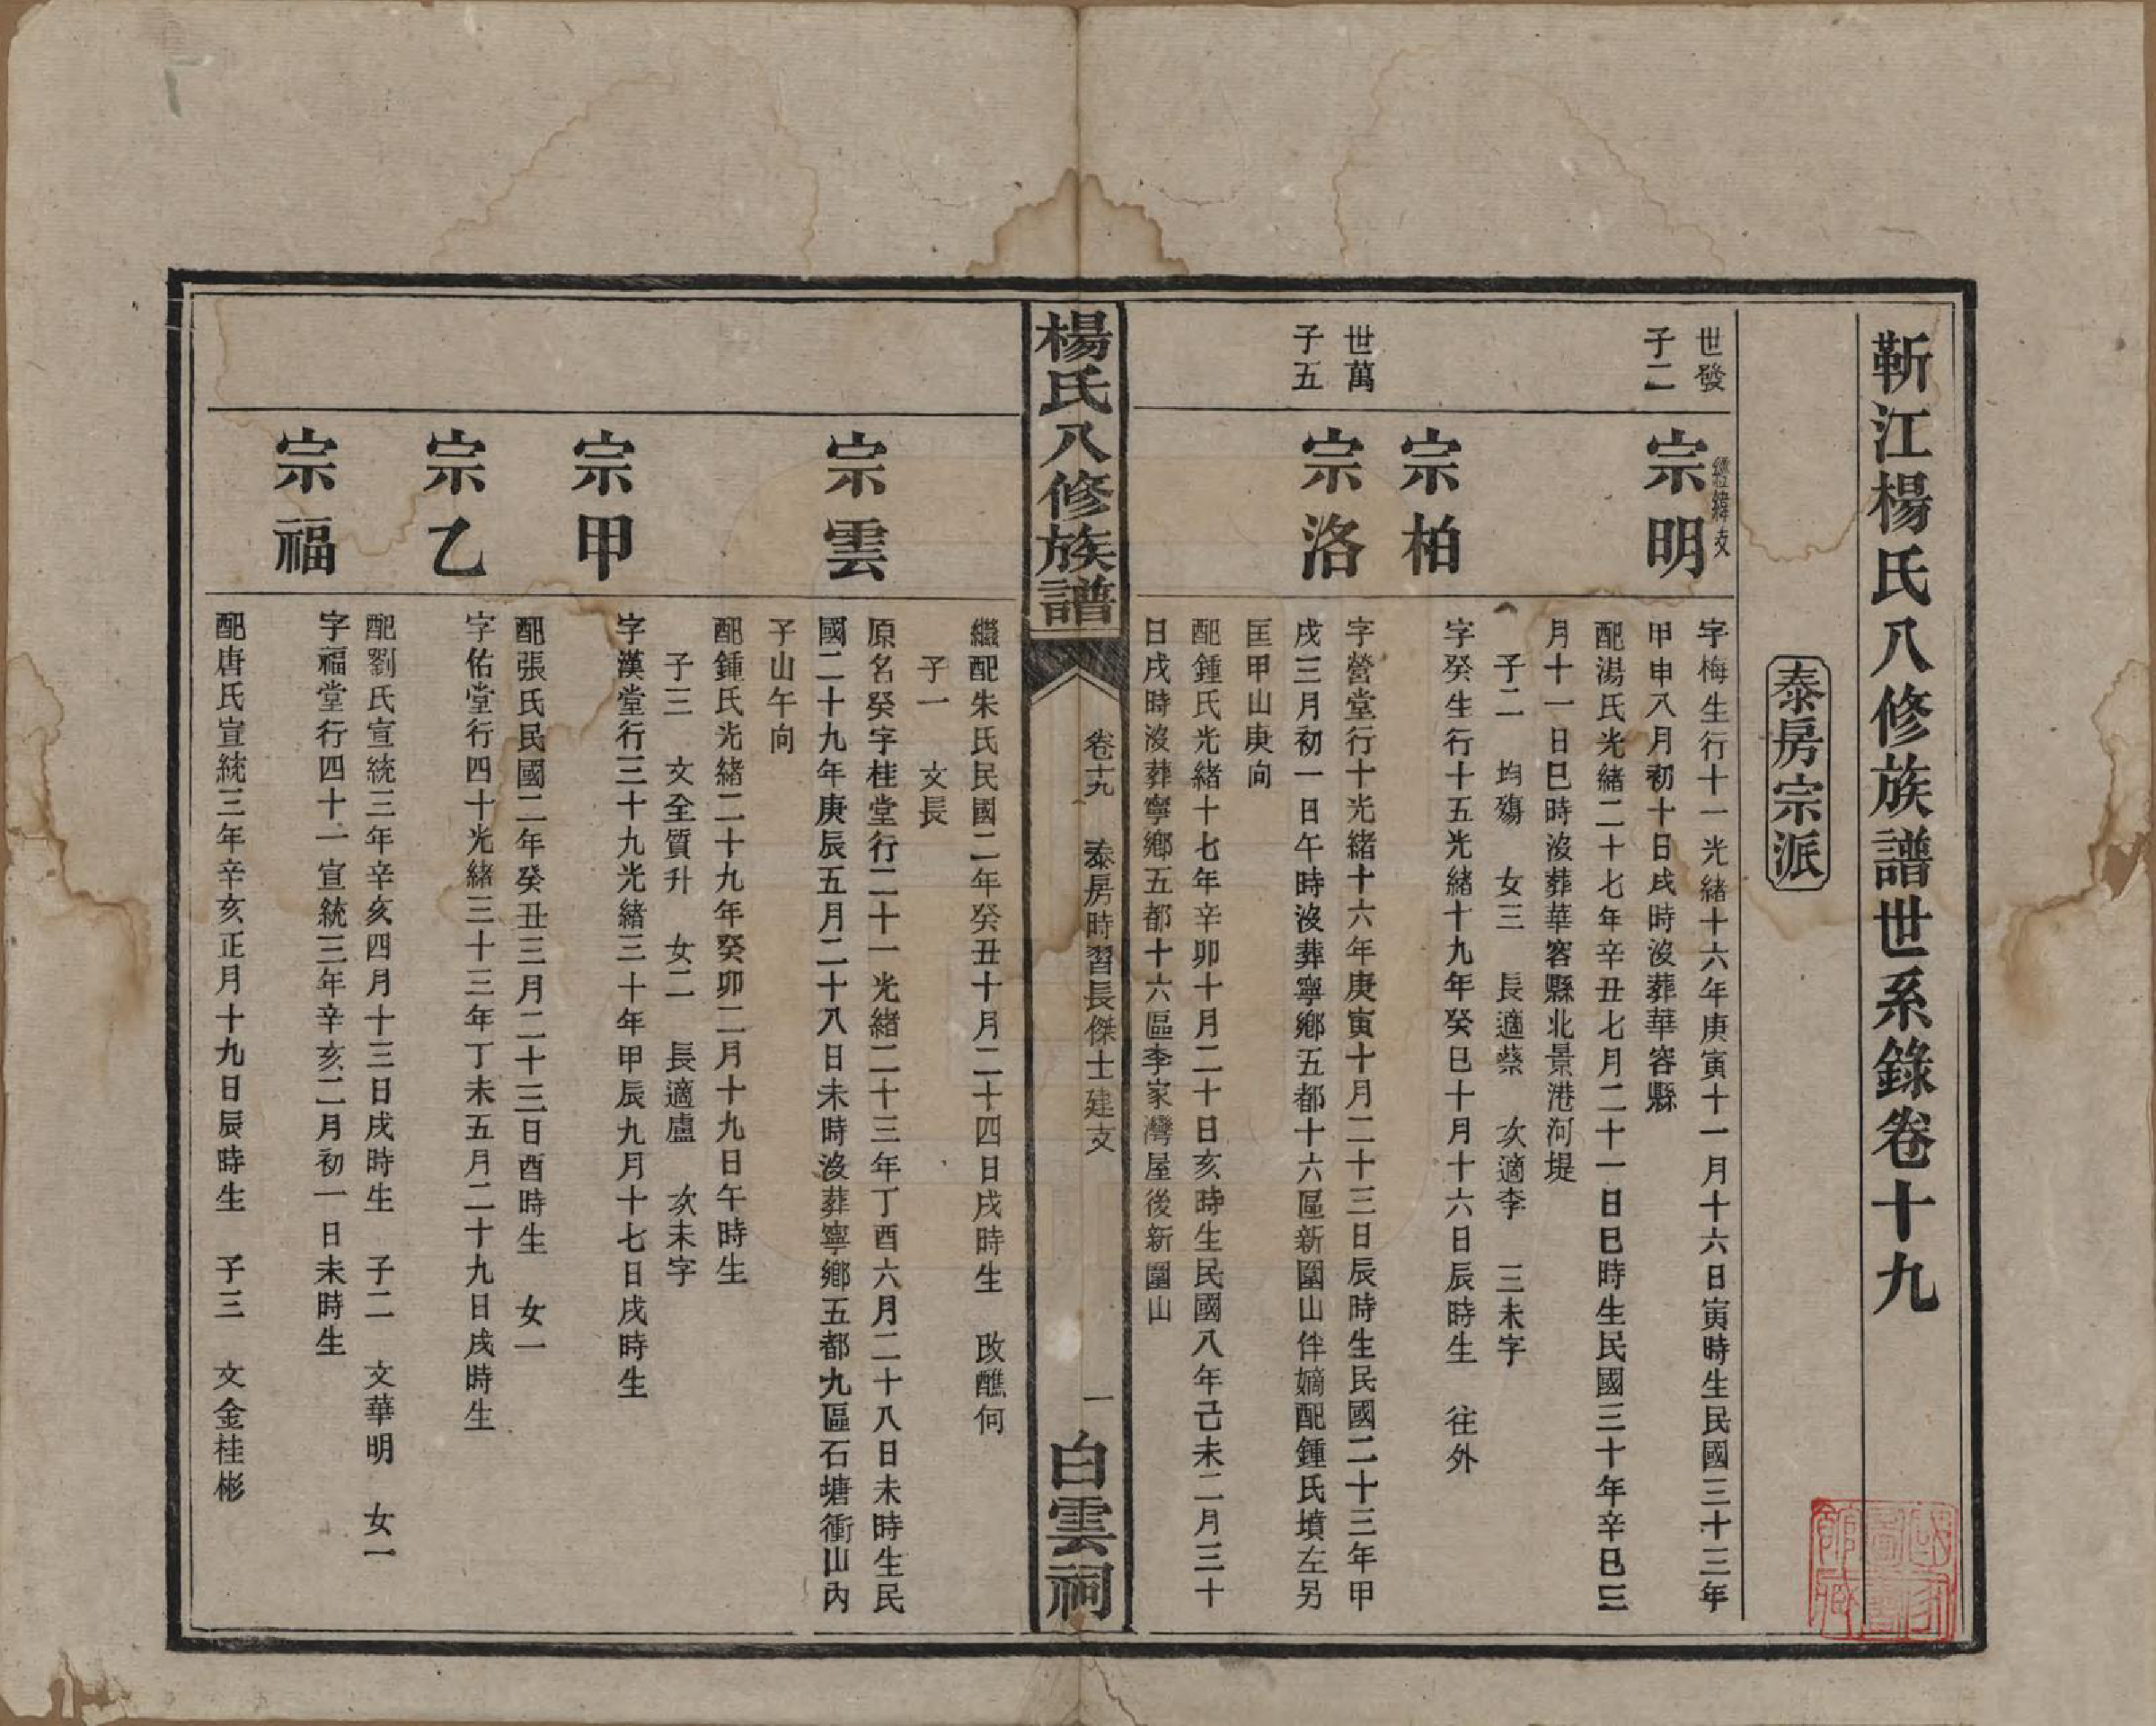 靳江楊氏八修族譜世系錄卷十九
泰房宗派
世發
子二
經緯支
宗明
字梅生行十一光緒十六年庚寅十一月十六日寅時生民國三十三年
甲申八月初十日戌時沒葬華容縣
配湯氏光緒二十七年辛丑七月二十一日巳時生民國三十年辛巳三
月十一日巳時沒葬華容縣北景港河堤
子二 均殤 女三 長適蔡 次適李 三未字
宗柏
字癸生行十五光緒十九年癸巳十月十六日辰時生 往外
世萬
子五
宗洛
字營堂行十光緒十六年庚寅十月二十三日辰時生民國二十三年甲
戌三月初一日午時沒葬寧鄉五都十六區新圍山伴嫡配鍾氏墳左另
匡甲山庚向
配鍾氏光緒十七年辛卯十月二十日亥時生民國八年己未二月三十
日戌時沒葬寧鄉五都十六區李家灣屋後新圍山
楊氏八修族譜
卷十九
泰房時習長傑士建支
一
白雲祠
繼配朱氏民國二年癸丑十月二十四日戌時生 改醮何
子一 文長
宗雲
原名癸字桂堂行二十一光緒二十三年丁酉六月二十八日未時生民
國二十九年庚辰五月二十八日未時沒葬寧鄉五都九區石塘衝山內
子山午向
配鍾氏光緒二十九年癸卯二月十九日午時生
子三 文全質升 女二 長適盧 次未字
宗甲
字漢堂行三十九光緒三十年甲辰九月十七日戌時生
配張氏民國二年癸丑三月二十三日酉時生 女一
宗乙
字佑堂行四十光緒三十三年丁未五月二十九日戌時生
配劉氏宣統三年辛亥四月十三日戌時生 子二 文華明 女一
宗福
字福堂行四十一宣統三年辛亥二月初一日未時生
配唐氏宣統三年辛亥正月十九日辰時生 子三 文金桂彬